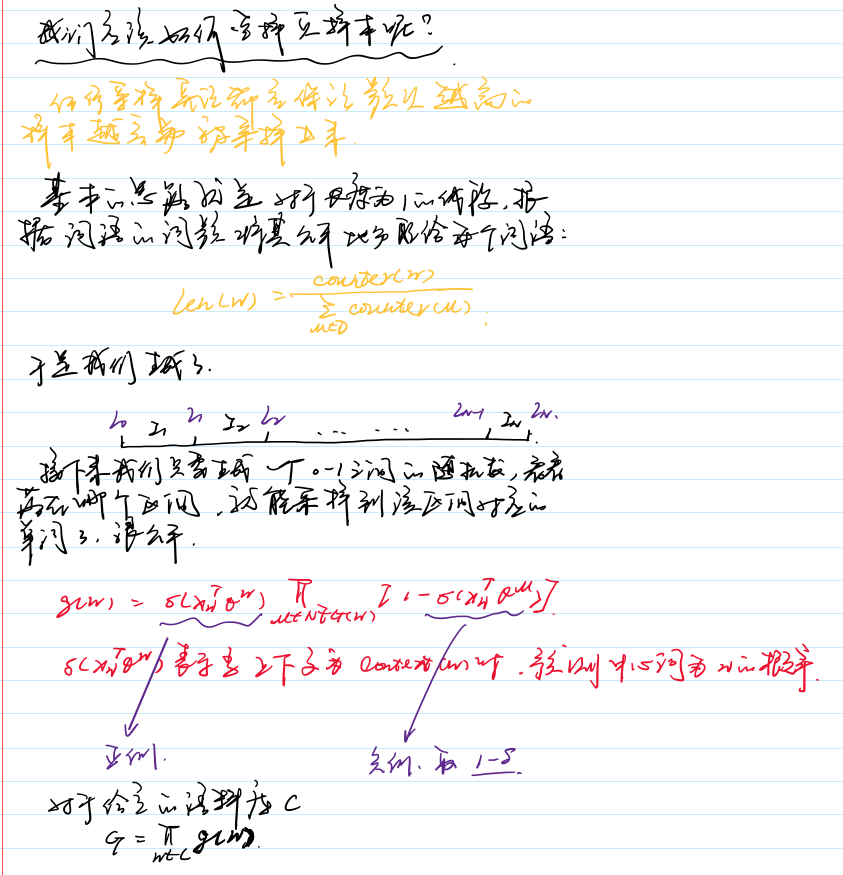 我们应该如何采样负样本呢?
任何采样算法都应保证频次越高的
样本越容易被采样出来.
基本的思路就是对于长度为1的线段,根
据词语的词频将其公平地分配给每个词语:
len(w) = \frac{counter(w)}{\sum_{u∈D} counter(u)}.
于是我们生成了.
l₀ I₁ l₁ I₂ l₂ ... ... l_{N-1} I_N l_N.
接下来我们只需生成一个0-1之间的随机数,看看
落在哪个区间,就能采样到该区间对应的
单词了,很公平.
g(w) = σ(x_w^T θ^w) ∏_{u∈NEG(w)} [1-σ(x_w^T θ^u)].
σ(x_w^T θ^w)表示当上下文为Context(w)时,预测中心词为w的概率.
正例. 负例.取 1-σ.
对于给定的语料库C
G = ∏_{w∈C} g(w).